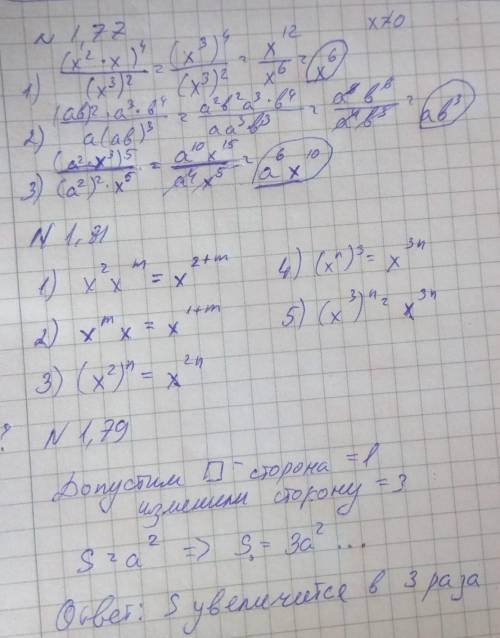 N 1,77 x≠0
1) (x² · x)⁴/(x³)² = (x³)⁴/(x³)² = x¹²/x⁶ = x⁶
2) (ab)² · a³ · b⁴/a(ab)³ = a²b²a³ · b⁴/aa³b³ = a⁵b⁶/a⁴b³ = ab³
3) (a² · x³)⁵/(a²)² · x⁵ = a¹⁰x¹⁵/a⁴x⁵ = a⁶x¹⁰
N 1,81
1) x²xᵐ = x²⁺ᵐ
2) xᵐx = x¹⁺ᵐ
3) (x²)ⁿ = x²ⁿ
4) (xⁿ)³ = x³ⁿ
5) (x³)ⁿ = x³ⁿ
? N 1,79
Допустим □ - сторона = 1
изменили сторону = 3
S = a² => S. = 3a² ...
Ответ: S увеличится в 3 раза